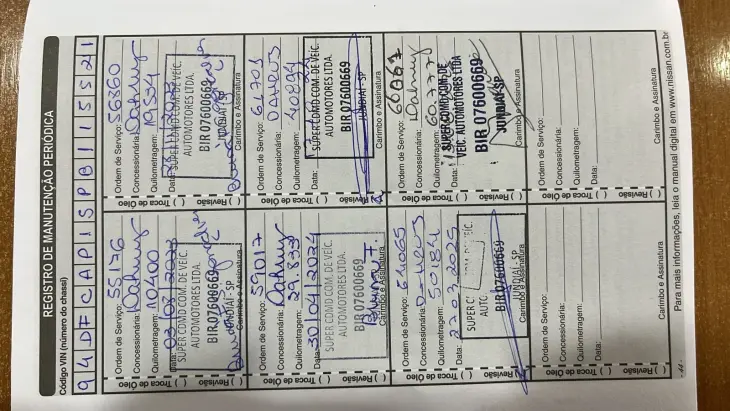 REGISTRO DE MANUTENÇÃO PERIÓDICA
Código VIN (número do chassi)
94DFCAP15PB115521
Revisão ( ) Troca de Óleo ( )
Ordem de Serviço: 55176
Concessionária: Dahruj
Quilometragem: 10400
Data:
SUPER COMD COM. DE VEIC.
AUTOMOTORES LTDA.
BIR 07600669
JUNDIAÍ-SP
Carimbo e Assinatura
Revisão ( ) Troca de Óleo ( )
Ordem de Serviço: 56360
Concessionária: Dahruj
Quilometragem: 19594
Data:
SUPER COMD COM. DE VEIC.
AUTOMOTORES LTDA.
BIR 07600669
JUNDIAÍ-SP
Carimbo e Assinatura
Revisão ( ) Troca de Óleo ( )
Ordem de Serviço: 59017
Concessionária: Dahruj
Quilometragem: 29.833
Data: 30/04/2024
SUPER COMD COM. DE VEIC.
AUTOMOTORES LTDA.
BIR 07600669
Carimbo e Assinatura
Revisão ( ) Troca de Óleo ( )
Ordem de Serviço: 61701
Concessionária:
Quilometragem: 40894
Data:
SUPER COMD COM. DE VEIC.
AUTOMOTORES LTDA.
BIR 07600669
JUNDIAÍ-SP
Carimbo e Assinatura
Revisão ( ) Troca de Óleo ( )
Ordem de Serviço: 64065
Concessionária:
Quilometragem: 50184
Data: 27.03.2025
BIR 07600669
JUNDIAÍ-SP
Carimbo e Assinatura
Revisão ( ) Troca de Óleo ( )
Ordem de Serviço:
Concessionária: Dahruj
Quilometragem: 60.777
Data:
SUPER COMD COM. DE
VEIC. AUTOMOTORES LTDA
BIR 07600669
JUNDIAÍ-SP
Carimbo e Assinatura
Revisão ( ) Troca de Óleo ( )
Ordem de Serviço:
Concessionária:
Quilometragem:
Data:
Carimbo e Assinatura
Revisão ( ) Troca de Óleo ( )
Ordem de Serviço:
Concessionária:
Quilometragem:
Data:
Carimbo e Assinatura
Para mais informações, leia o manual digital em www.nissan.com.br